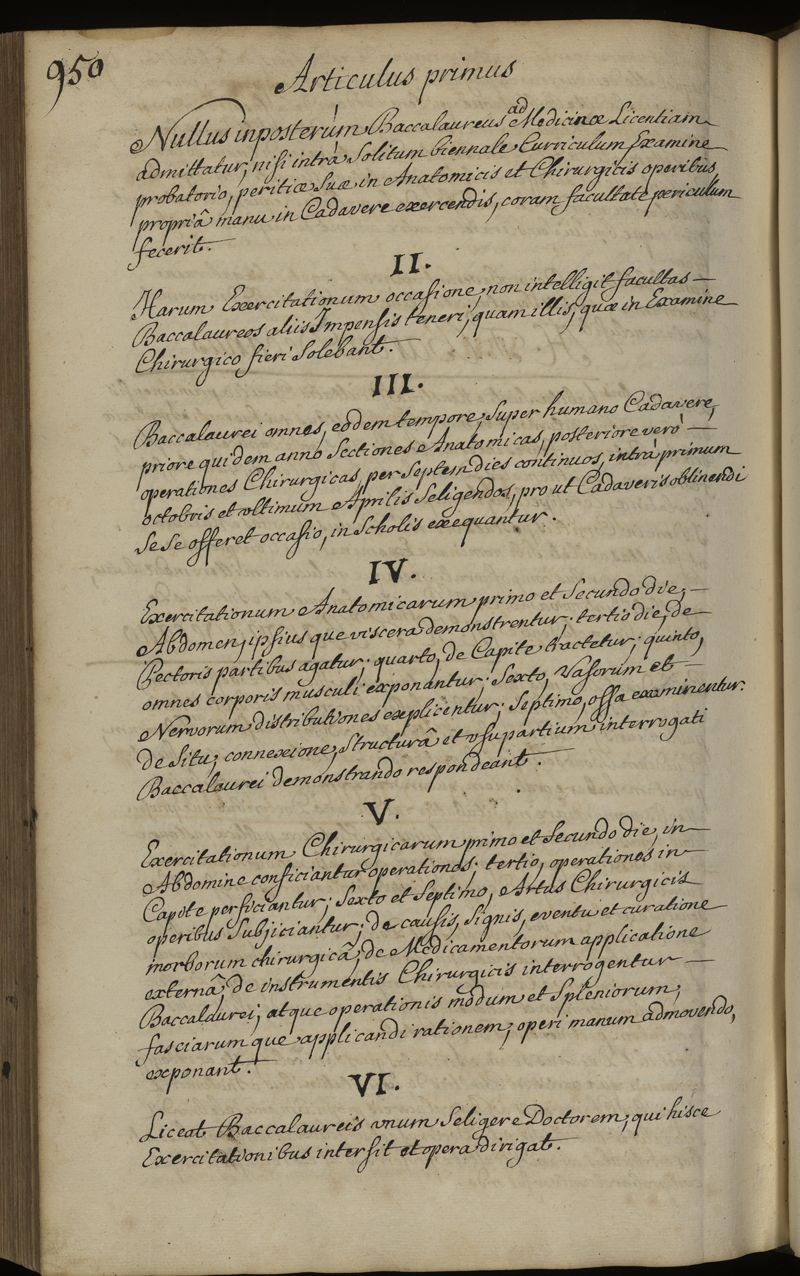 950
Articulus primus
Nullus inposterùm Baccalaureus ad Medicinæ Licentiam
admittatur, nisi intrà Solitum biennale Curriculum Examine
probatorio, peritiæ Suæ in Anatomicis et Chirurgicis operibus
propriâ manu in Cadavere exercendis, coram facultate periculum
fecerit.
II.
Harum Exercitationum occasione, non intelligit facultas —
Baccalaureos aliis Impensis teneri, quam illis, quæ in Examine
Chirurgico fieri Solebant.
III.
Baccalaurei omnes, eodem tempore, Super humano Cadavere,
priore quidem anno Sectiones Anatomicas, posteriore verò —
operationes Chirurgicas, per Septem dies continuos, intrà primum
octobris et vltimum Aprilis Seligendos, pro ut Cadaveris oblinendi
Se Se offeret occasio, in Scholis exequantur.
IV.
Exercitationum Anatomicarum primo et Secundo die, —
Abdomen, ipsius que viscera demonstrentur; tertio die, de
Pectoris partibus agatur; quarto, de Capite tractetur; quinto,
omnes corporis musculi exponantur; Sexto, Vasorum et —
Nervorum distributiones explicentur; Septimo, ossa examinentur.
de Situ, connexione, Structurâ et vsu partium interrogati
Baccalaurei demonstrando respondeant.
V.
Exercitationum Chirurgicarum primo et Secundo die, in —
Abdomine conficiantur operationes; tertio, operationes in —
Capite perficiantur; Sexto et Septimo, Artus Chirurgicis
operibus Subjiciantur; de causis, Signis, eventu et curatione
morborum chirurgicâ; de Medicamentorum applicatione
externâ, de instrumentis Chirurgicis interrogentur —
Baccalaurei, atque operationis modum et Spleniorum,
fasciarum que applicandi rationem, operi manum admovendo,
exponant.
VI.
Liceat Baccalaureis vnum Seligere Doctorem, qui hisce
Exercitationibus intersit et opera dirigat.